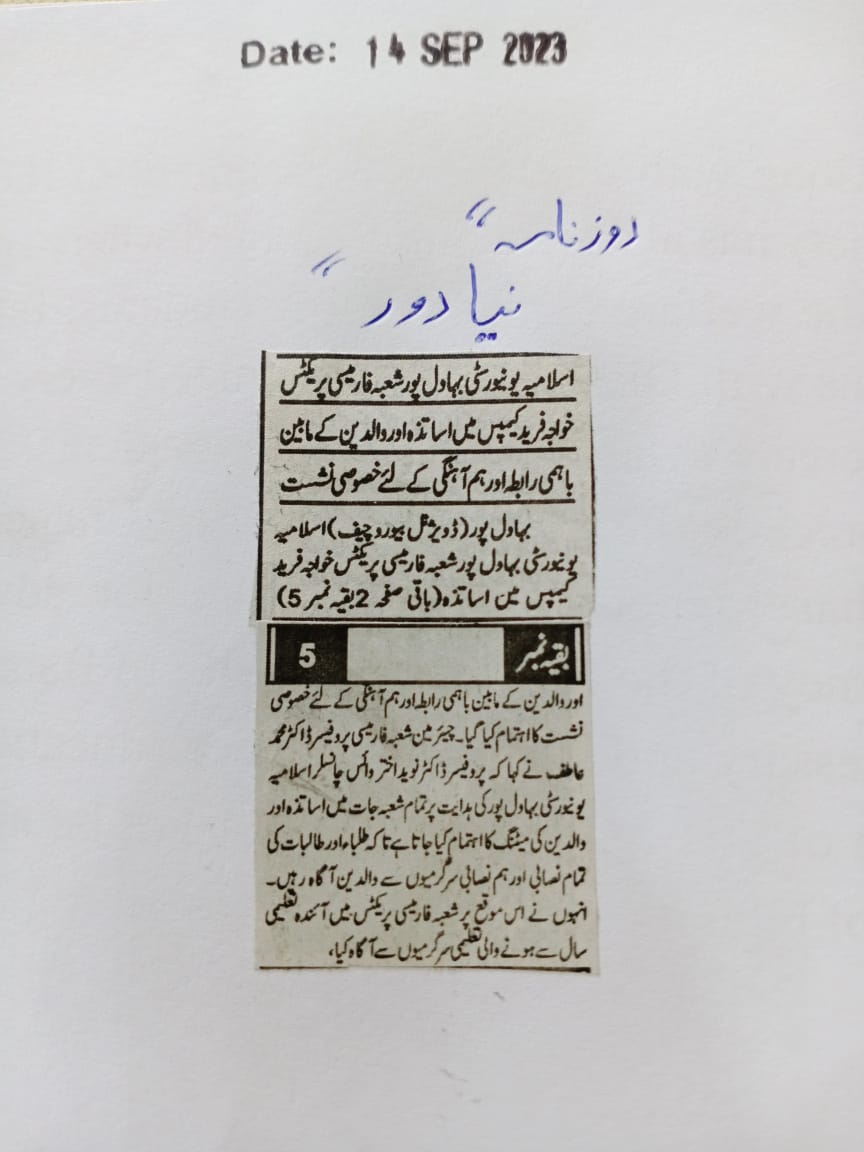 Date: 14 SEP 2023
روزنامہ "
نیا دور "
اسلامیہ یونیورسٹی بہاول پور شعبہ فارمیسی پریکٹس
خواجہ فرید کیمپس میں اساتذہ اور والدین کے مابین
باہمی رابطہ اور ہم آہنگی کے لئے خصوصی نشست
بہاول پور (ڈویژنل بیورو چیف) اسلامیہ
یونیورسٹی بہاول پور شعبہ فارمیسی پریکٹس خواجہ فرید
کیمپس مین اساتذہ (باقی صفحہ 2 بقیہ نمبر 5)
بقیہ نمبر 5
اور والدین کے مابین باہمی رابطہ اور ہم آہنگی کے لئے خصوصی
نشست کا اہتمام کیا گیا۔ چیئرمین شعبہ فارمیسی پروفیسر ڈاکٹر محمد
عاطف نے کہا کہ پروفیسر ڈاکٹر نوید اختر وائس چانسلر اسلامیہ
یونیورسٹی بہاول پور کی ہدایت پر تمام شعبہ جات میں اساتذہ اور
والدین کی میٹنگ کا اہتمام کیا جاتا ہے تاکہ طلباء اور طالبات کی
تمام نصابی اور ہم نصابی سرگرمیوں سے والدین آگاہ رہیں۔
انہوں نے اس موقع پر شعبہ فارمیسی پریکٹس میں آئندہ تعلیمی
سال سے ہونے والی تعلیمی سرگرمیوں سے آگاہ کیا،